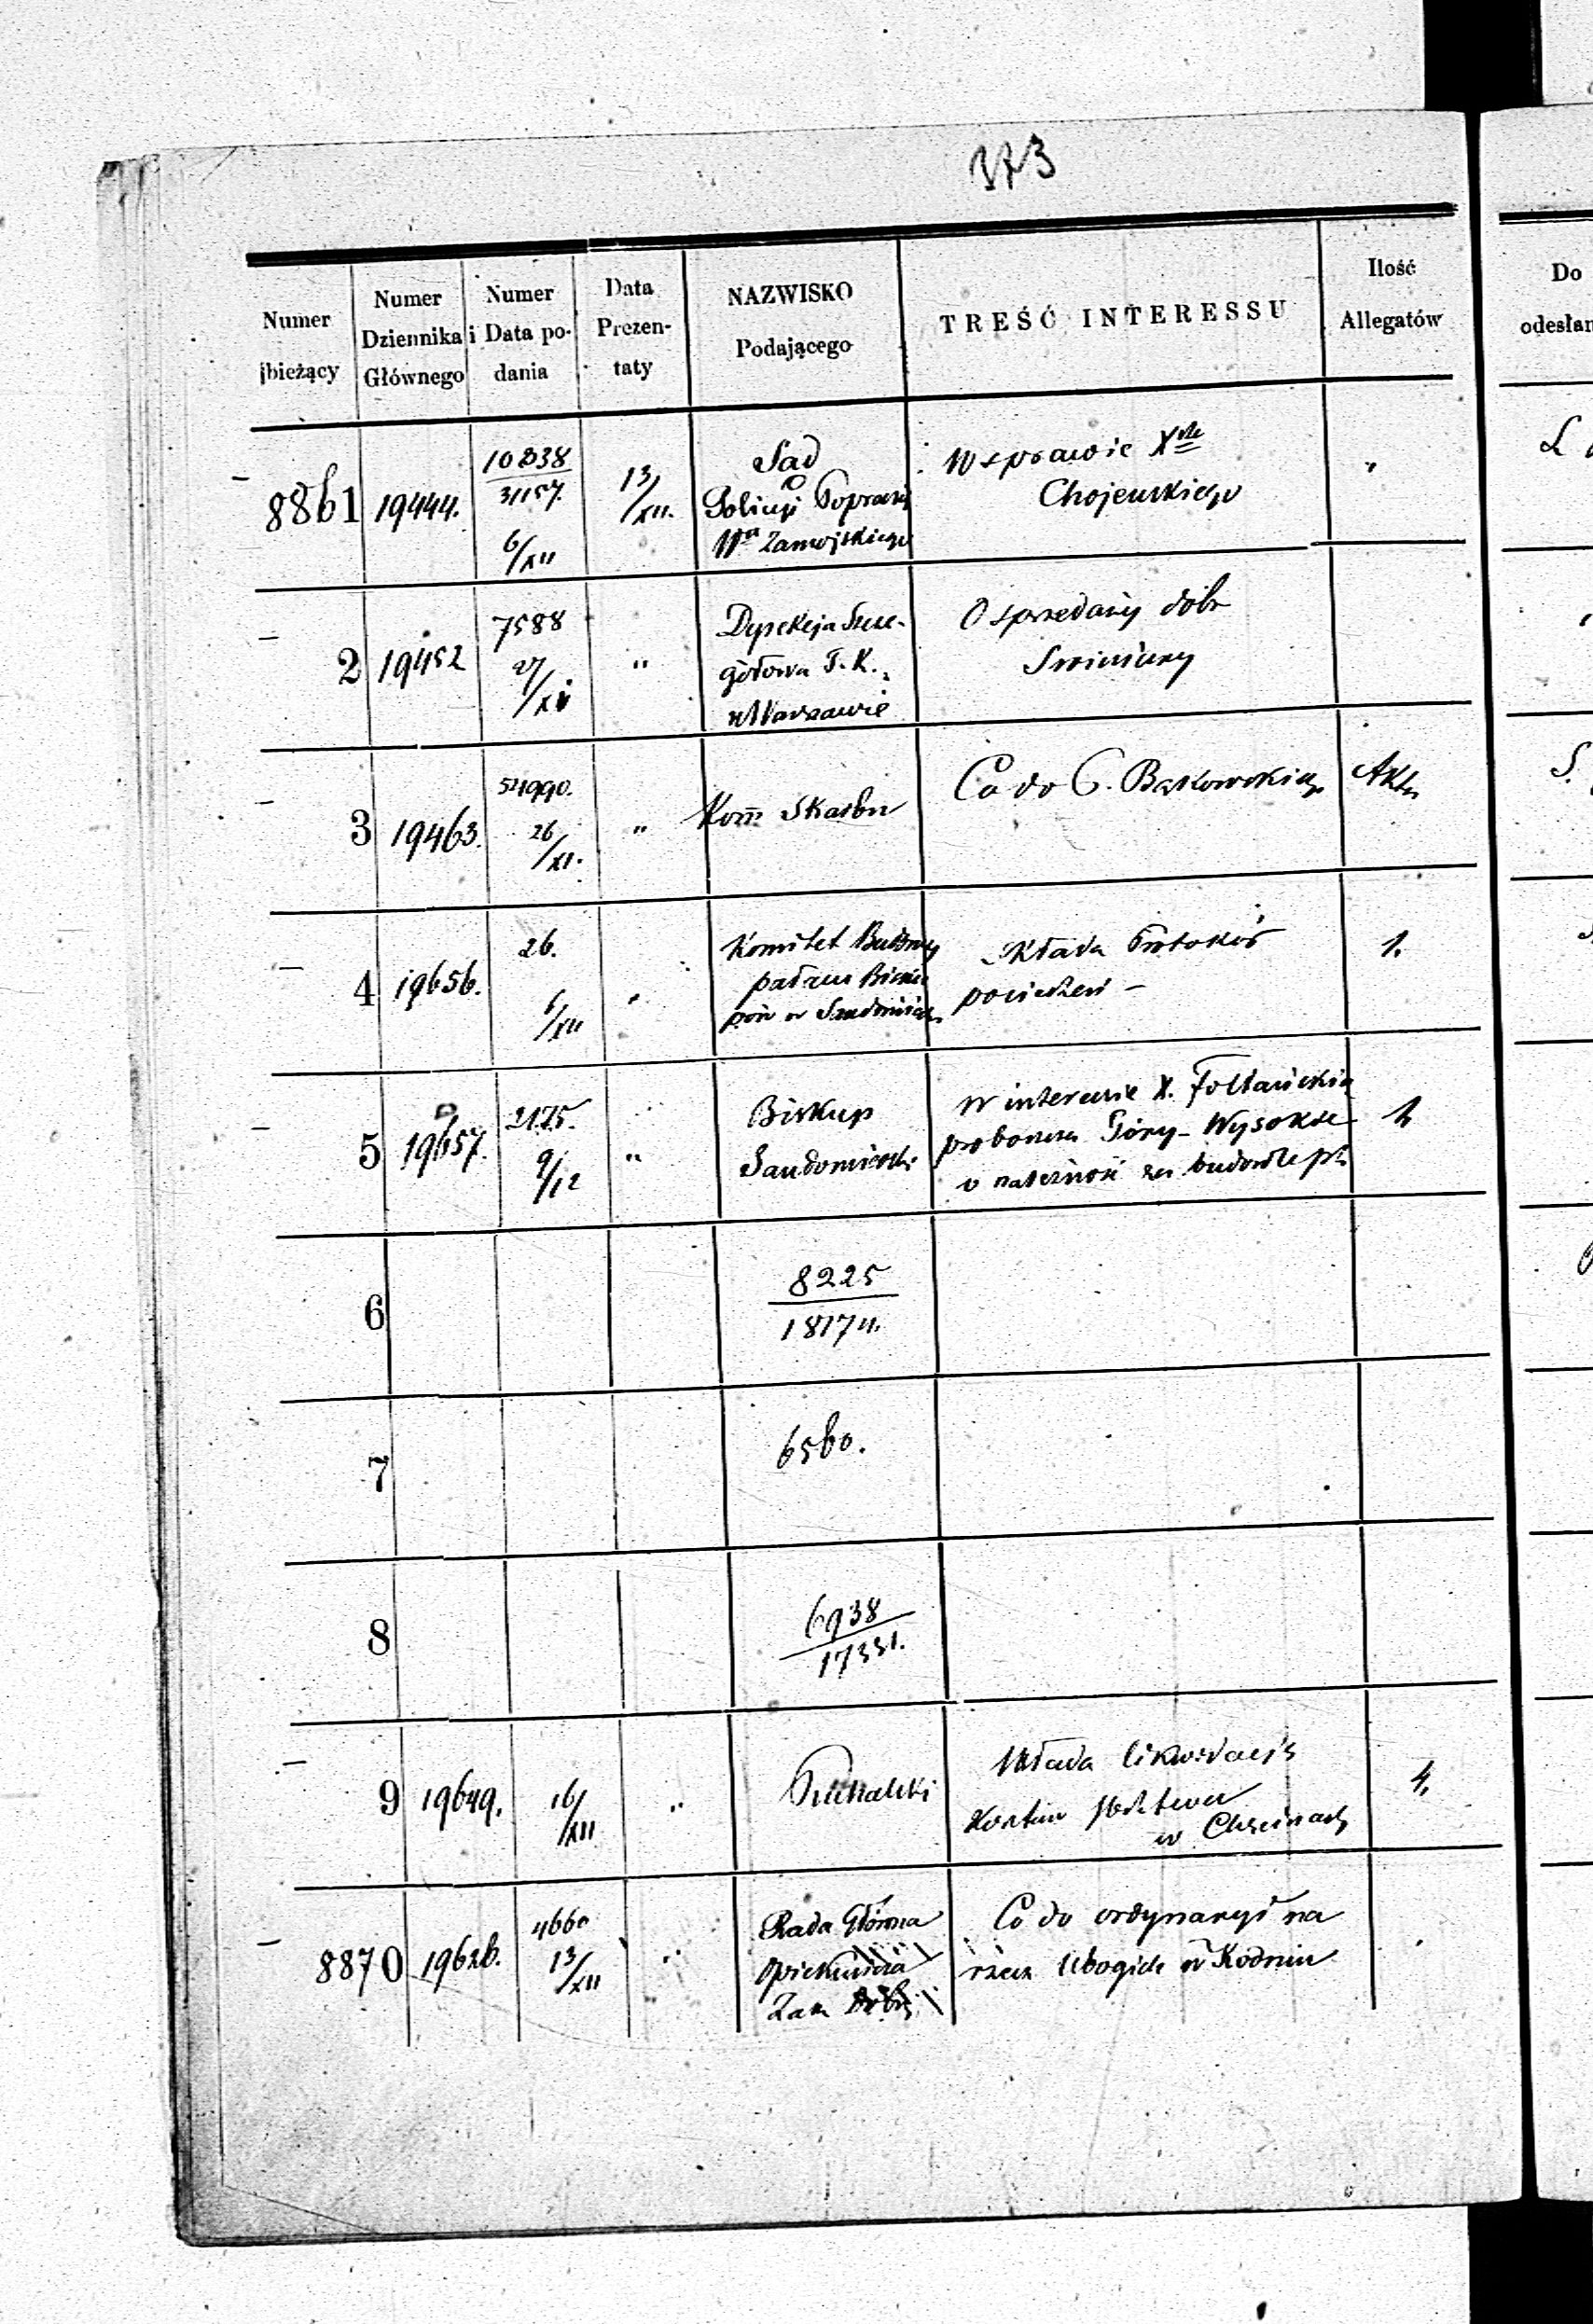 373
Numer bieżący
Numer Dziennika Głównego
Numer i Data podania
Data Prezentaty
NAZWISKO Podającego
TREŚĆ INTERESSU
Ilość Allegatów
Do
odesłan
8861 19444. 10838
31157.
6/XII
13/XII.
Sąd
Policyi Poprawcz
Wu Zamojskiego
W sprawie Xdz
Chojewskiego
"
2 19452
7588
27/XI
"
Dyrekcja Szcze-
gółowa T. K.
w Warszawie
O sprzedaży dóbr
3 19463.
54990.
26/XI.
"
Kom Skarbu
Co do P. Bąkowskieg
Akta
4 19656.
26.
6/XII
"
Komitet Budowy
pałacu Bisku
pów w Sandomierz
Składa Protokół
posiedzeń –
1.
5 19657.
2175.
9/12
"
Biskup
Sandomierski
W interesie X.
proboszcza Góry-Wysokie
o należność za budowle
1
6
8225
18174.
7
6560.
8
6938
17331.
9 19649.
16/XII
"
Składa likwidacją
kosztów
w Chęcinach
4.
8870 19626.
4660
13/XII
"
Rada Główna
Opiekuńcza
Zak Dobr
Co do ordynaryi na
rzecz Ubogich w Kodniu